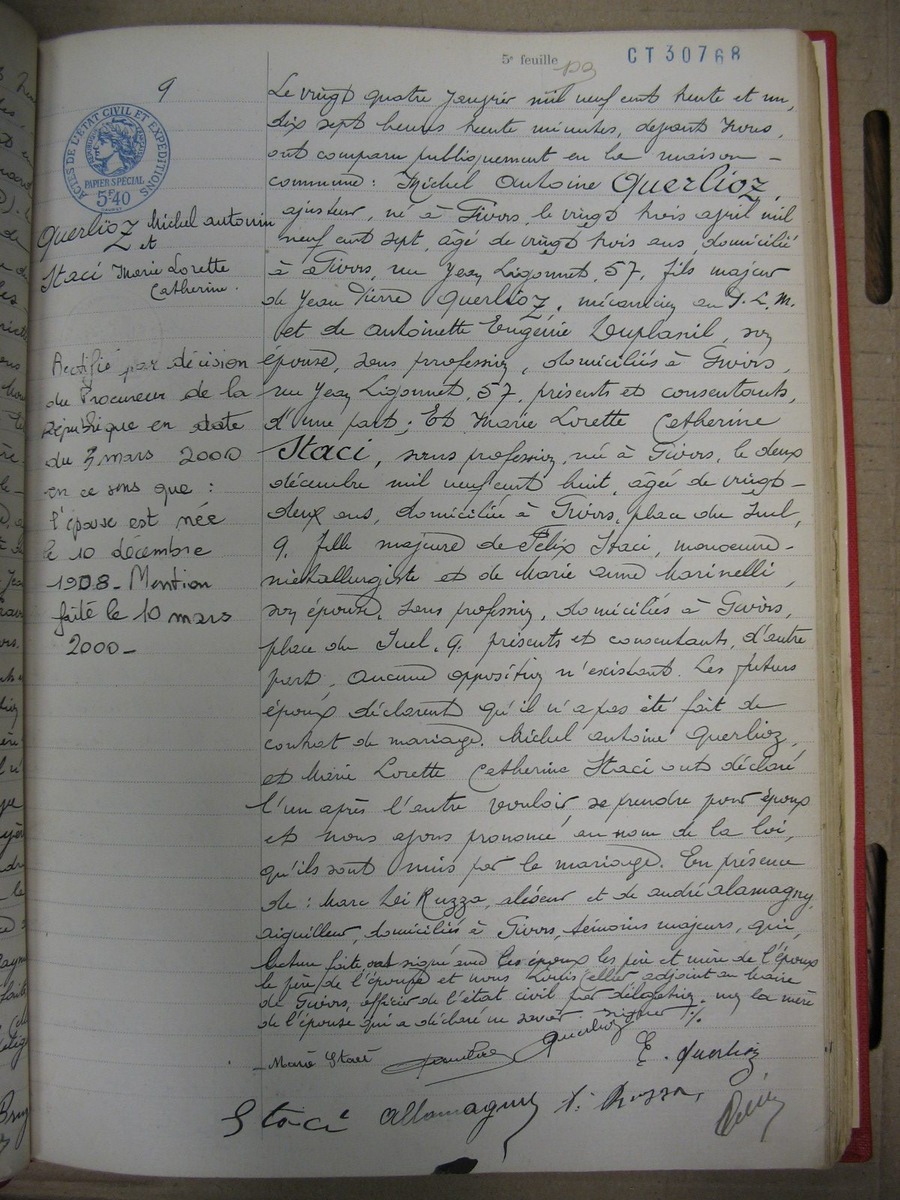 5e feuille 123
CT 30768
9
ACTES DE L'ETAT CIVIL ET EXPEDITIONS
PAPIER SPECIAL
5F40
Querlioz Michel antonin
et
Staci Marie Lorette
Catherine.
Rectifié par décision
du Procureur de la
République en date
du 7 mars 2000
en ce sens que :
l'épouse est née
le 10 décembre
1908 - Mention
faite le 10 mars
2000 -
Le vingt quatre Janvier mil neuf cent trente et un,
dix sept heures trente minutes, devant Nous,
ont comparu publiquement en la maison -
commune : Michel Antoine Querlioz,
ajusteur, né à Givors, le vingt trois avril mil
neuf cent sept, âgé de vingt trois ans, domicilié
à Givors, rue Jean Ligonnet, 57, fils majeur
de Jean Pierre Querlioz, mécanicien au P.L.M.
et de Antoinette Eugénie Duplasil, son
épouse, sans profession, domiciliés à Givors,
rue Jean Ligonnet, 57, présents et consentants,
d'une part ; Et Marie Lorette Catherine
Staci, sans profession, née à Givors, le deux
décembre mil neuf cent huit, âgée de vingt-
deux ans, domiciliée à Givors, place du Suel,
9, fille majeure de Félix Staci, manoeuvre-
métallurgiste et de Marie Anne Marinelli,
son épouse, sans profession, domiciliés à Givors,
place du Suel, 9, présents et consentants, d'autre
part, aucune opposition n'existant. Les futurs
époux déclarent qu'il n'a pas été fait de
contrat de mariage. Michel Antoine Querlioz,
et Marie Lorette Catherine Staci ont déclaré
l'un après l'autre vouloir se prendre pour époux
et nous avons prononcé au nom de la loi,
qu'ils sont unis par le mariage. En présence
de : Marc Dei Ruzza, aléseur et de andré alamagny,
aiguilleur, domiciliés à Givors, témoins majeurs, qui,
lecture faite, ont signé avec les époux les père et mère de l'époux
le père de l'épouse et nous Louis Cellier adjoint au Maire
de Givors, officier de l'état civil par délégation, non la mère
de l'épouse qui a déclaré ne savoir signer ./.
Marie Staci Querlioz E. Querlioz
Staci Allamagny D. Ruzza